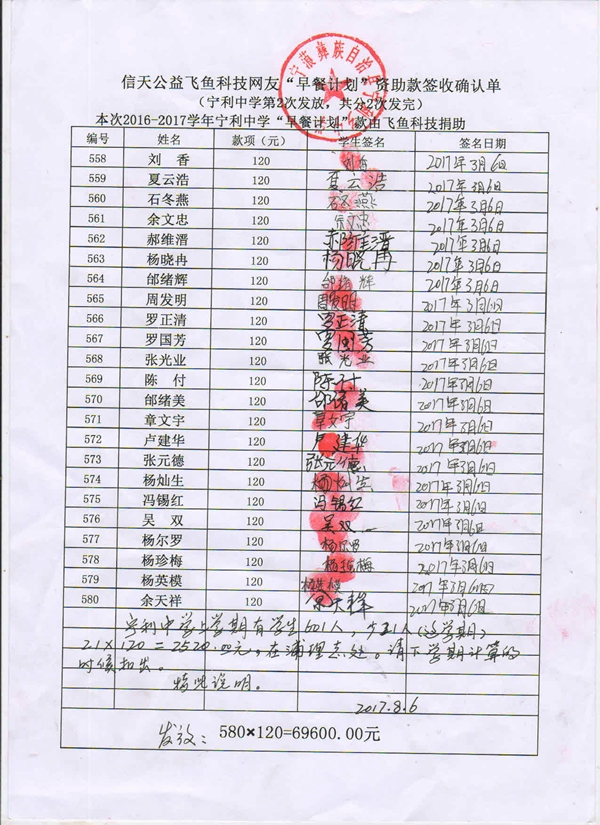 信天公益飞鱼科技网友“早餐计划”资助款签收确认单
（宁利中学第2次发放，共分2次发完）
本次2016-2017学年宁利中学“早餐计划”款由飞鱼科技捐助
编号 姓名 款项（元） 学生签名 签名日期
558 刘 香 120 刘香 2017年3月6日
559 夏云浩 120 夏云浩 2017年3月6日
560 石冬燕 120 石冬燕 2017年3月6日
561 余文忠 120 余文忠 2017年3月6日
562 郝维滔 120 郝维滔 2017年3月6日
563 杨晓冉 120 杨晓冉 2017年3月6日
564 邰绪辉 120 邰绪辉 2017年3月6日
565 周发明 120 周发明 2017年3月6日
566 罗正清 120 罗正清 2017年3月6日
567 罗国芳 120 罗国芳 2017年3月6日
568 张光业 120 张光业 2017年3月6日
569 陈 付 120 陈付 2017年3月6日
570 邰绪美 120 邰绪美 2017年3月6日
571 章文宇 120 章文宇 2017年3月6日
572 卢建华 120 卢建华 2017年3月6日
573 张元德 120 张元德 2017年3月6日
574 杨灿生 120 杨灿生 2017年3月6日
575 冯锡红 120 冯锡红 2017年3月6日
576 吴 双 120 吴双 2017年3月6日
577 杨尔罗 120 杨尔罗 2017年3月6日
578 杨珍梅 120 杨珍梅 2017年3月6日
579 杨英模 120 杨英模 2017年3月6日
580 余天祥 120 余天祥 2017年3月6日
宁利中学上学期有学生601人，少21人（这学期）
21×120=2520.00元，在浦理志处。请下学期计算的
时候扣出。
特此说明。
2017.8.6
发放： 580×120=69600.00元